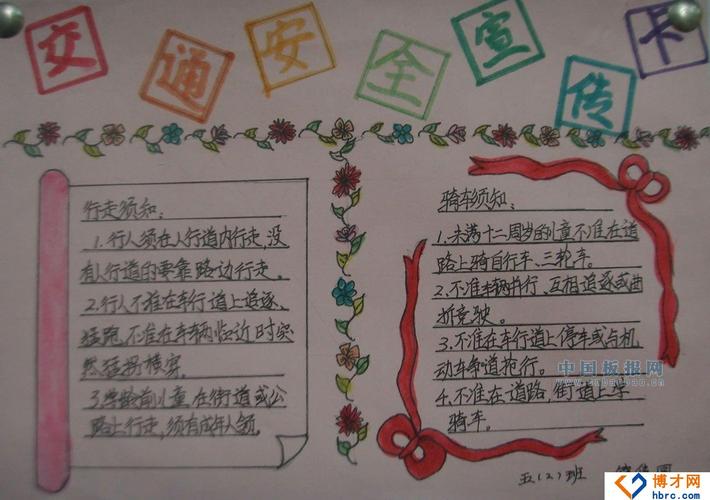 交通安全宣传卡
行走须知：
1.行人须在人行道内行走，没
有人行道的要靠路边行走。
2.行人不准在车行道上追逐、
猛跑，不准在车辆临近时突
然猛拐横穿。
3.学龄前儿童，在街道或公
路上行走，须有成年人领。
骑车须知：
1.未满十二周岁的儿童不准在道
路上骑自行车、三轮车。
2.不准车辆并行、互相追逐或曲
折竞驶。
3.不准在车行道上停车或与机
动车争道抢行。
4.不准在道路，街道上学
骑车。
五(2)班
中国板报网
博才网
hbrc.com